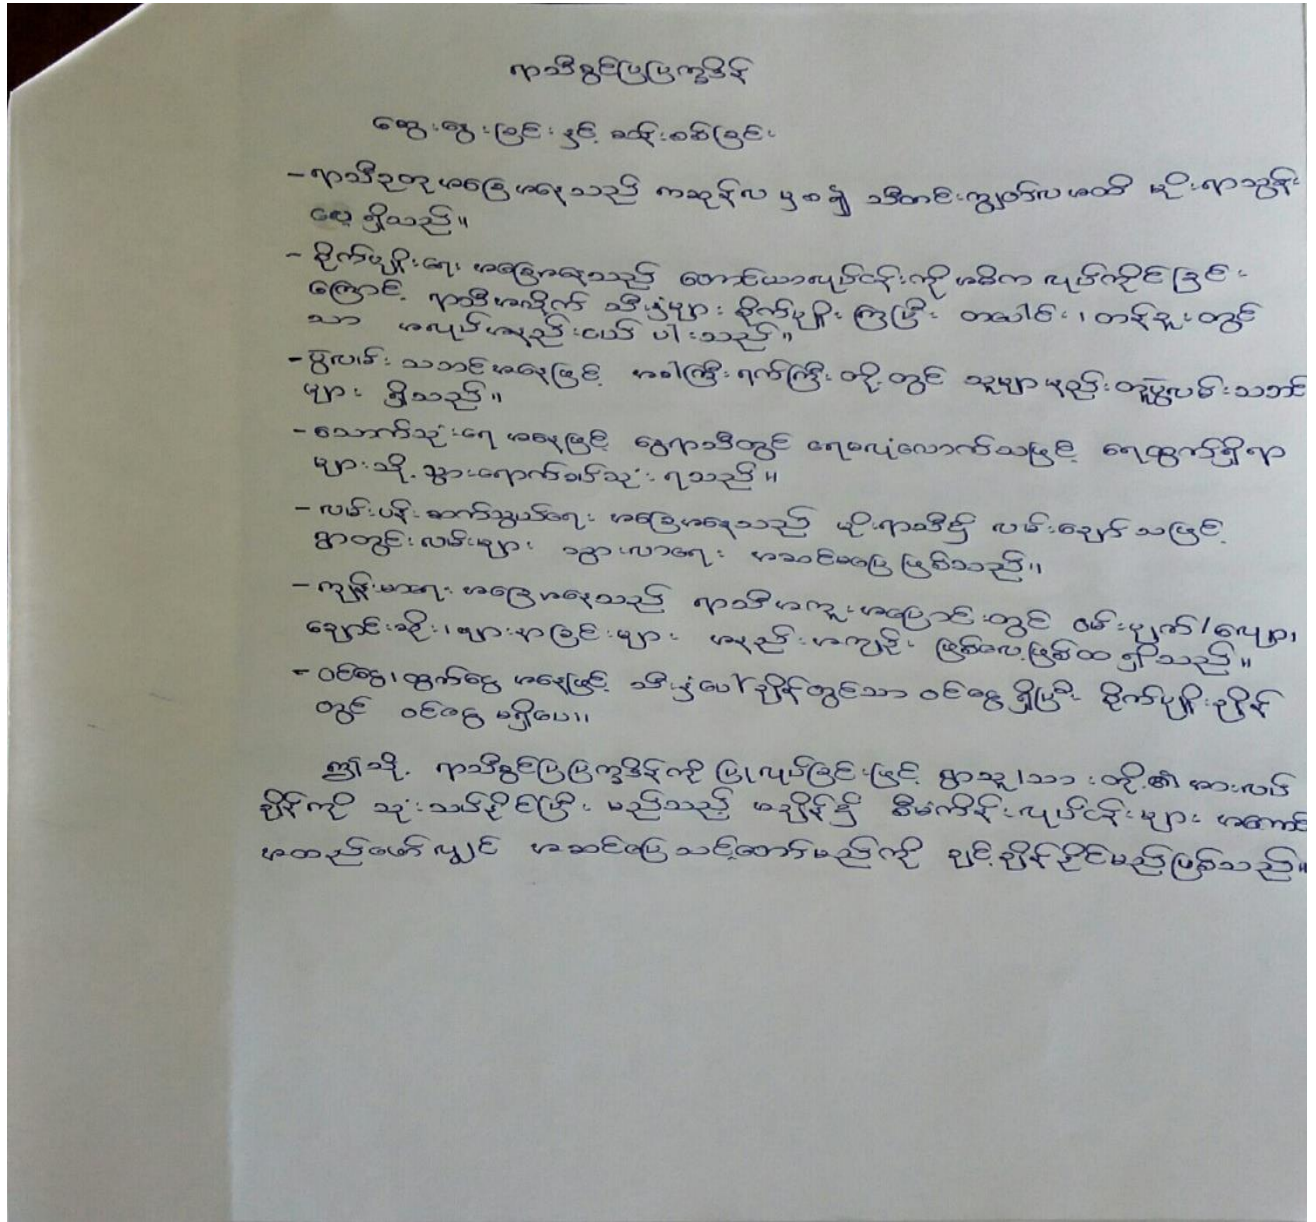 ရာသီခွင်ပြပြက္ခဒိန်
ဆွေးနွေးခြင်းနှင့် ဆန်းစစ်ခြင်း
- ရာသီဥတုအခြေအနေသည် ကဆုန်လမှစ၍ သီတင်းကျွတ်လအထိ မိုးရာသွန်း
လေ့ရှိသည်။
- စိုက်ပျိုးရေး အခြေအနေသည် တောင်ယာလုပ်ငန်းကိုအဓိကလုပ်ကိုင်ခြင်း
ကြောင့် ရာသီအလိုက် သီးနှံများ စိုက်ပျိုးကြပြီး တပေါင်း၊တန်ခူးတွင်
သာ အလုပ်အနည်းငယ် ပါးသည်။
- ပွဲလမ်းသဘင်အနေဖြင့် အခါကြီးရက်ကြီးတို့တွင် သူများနည်းတူပွဲလမ်းသဘင်
များ ရှိသည်။
- သောက်သုံးရေ အနေဖြင့် နွေရာသီတွင် ရေမလုံလောက်သဖြင့် ရေထွက်ရှိရာ
များသို့ သွားရောက်ခပ်သုံးရသည်။
- လမ်းပန်းဆက်သွယ်ရေး အခြေအနေသည် မိုးရာသီ၌ လမ်းချော်သဖြင့်
ရွာတွင်းလမ်းများ သွားလာရေး အဆင်မပြေဖြစ်သည်။
- ကျန်းမာရေး အခြေအနေသည် ရာသီအကူးအပြောင်းတွင် ဝမ်းပျက်/လျော၊
ချောင်းဆိုး၊ဖျားနာခြင်းများ အနည်းအကျဉ်း ဖြစ်လေ့ဖြစ်ထရှိသည်။
- ဝင်ငွေ၊ထွက်ငွေ အနေဖြင့် သီးနှံပေါ်ချိန်တွင်သာ ဝင်ငွေရှိပြီး စိုက်ပျိုးချိန်
တွင် ဝင်ငွေ မရှိပေ။
ဤသို့ ရာသီခွင်ပြပြက္ခဒိန်ကို ပြုလုပ်ခြင်းဖြင့် ရွာသူ/သားတို့၏ အားလပ်
ချိန်ကို သုံးသပ်နိုင်ပြီး မည်သည့် အချိန်၌ စီမံကိန်းလုပ်ငန်းများ အကောင်
အထည်ဖော်လျှင် အဆင်ပြေသင့်တော်မည်ကို ချင့်ချိန်နိုင်မည်ဖြစ်သည်။